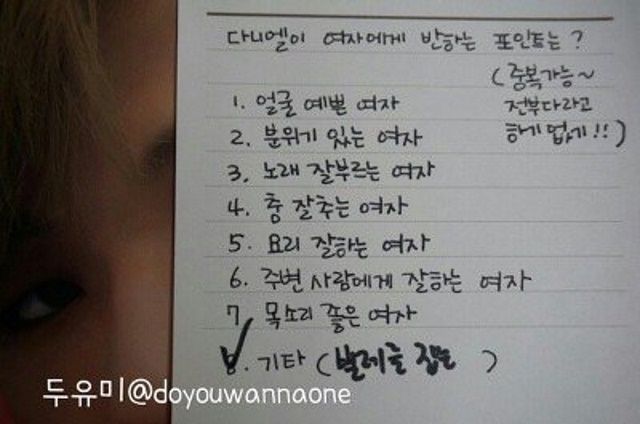 다니엘이 여자에게 반하는 포인트는?
(중복가능~
1. 얼굴 예쁜 여자 전부다라고
2. 분위기 있는 여자 하기 없기!!)
3. 노래 잘부르는 여자
4. 춤 잘추는 여자
5. 요리 잘하는 여자
6. 주변 사람에게 잘하는 여자
7. 목소리 좋은 여자
8. 기타 (벌레를 잡는)
두유미@doyouwannaone